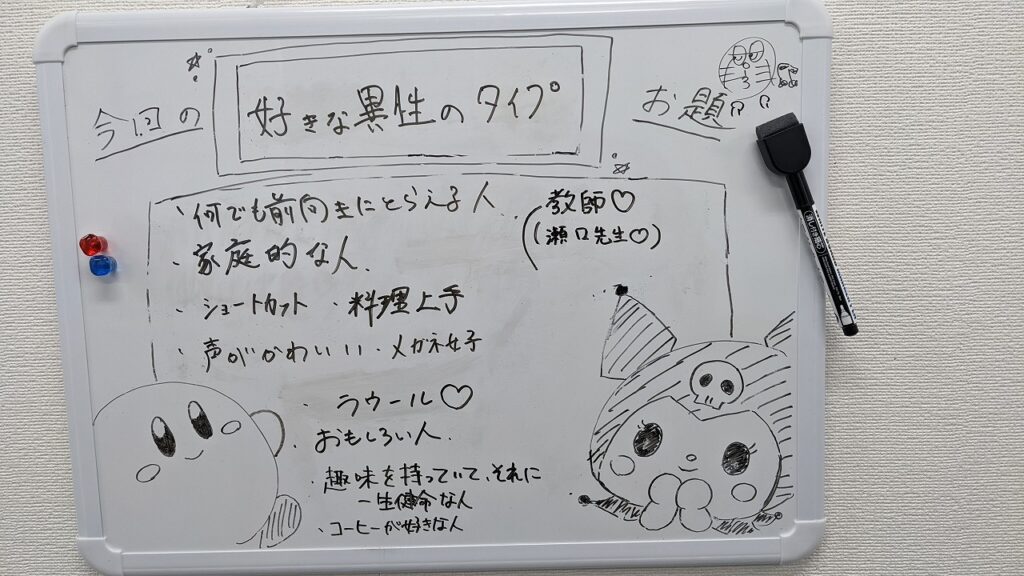 今回の
好きな異性のタイプ
お題
・何でも前向きにとらえる人
教師♡
(瀬口先生♡)
・家庭的な人
・ショートカット ・料理上手
・声がかわいい ・メガネ女子
・ラウール♡
・おもしろい人
・趣味を持っていて、それに
一生健命な人
・コーヒーが好きな人